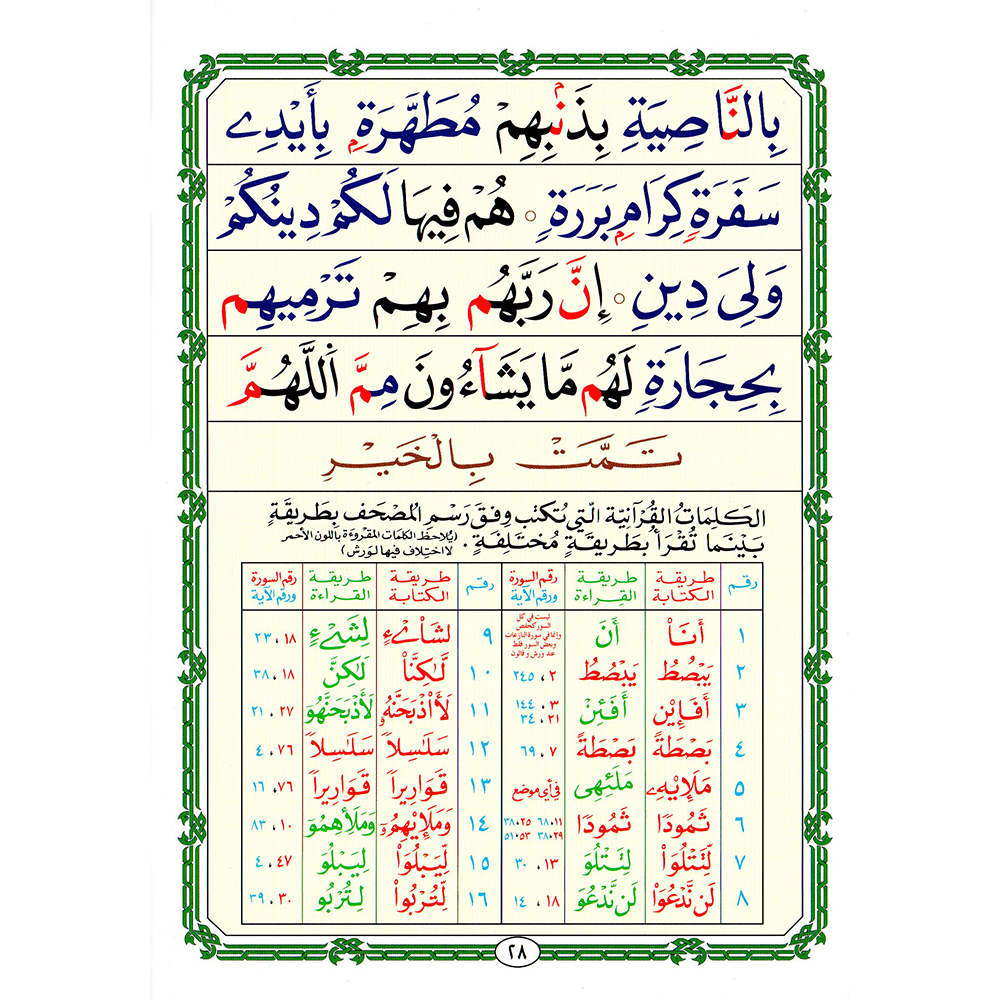 بِالنَّاصِيَةِ بِذَنۢبِهِمْ مُطَهَّرَةٍۭ بِأَيْدِے
سَفَرَةٍ كِرَامٍۭ بَرَرَةٍ ۝ هُمْ فِيهَا لَكُمْ دِينُكُمْ
وَلِىَ دِينِ ۝ إِنَّ رَبَّهُم بِهِمْ تَرْمِيهِم
بِحِجَارَةٍ لَهُم مَّا يَشَآءُونَ مِمَّ اَللَّهُمَّ
تَمَّتْ بِالْخَيْرِ
الكَلِمَاتُ القُرْآنِيَّة الَّتِي تُكتَب وِفقَ رَسْمِ المُصْحَف بِطَرِيقَةٍ
بَيْنَمَا تُقْرَأ بِطَرِيقَةٍ مُخْتَلِفَةٍ . (يُلاحظ الكلمات المقروءة باللون الأحمر
لا اختلاف فيها لورش)
رقم طريقة الكتابة طريقة القراءة رقم السورة ورقم الآية رقم طريقة الكتابة طريقة القراءة رقم السورة ورقم الآية
١ أَنَا۠ أَنَ ليست في كل السور كحفص وإنما في سورة النازعات وبعض السور فقط عند ورش و قالون ٩ لِشَاْےْءٍ لِشَےْءٍ ١٨، ٢٣
٢ يَبْصُطُ يَبْصُطُ ٢، ٢٤٥ ١٠ لَّٰكِنَّا۠ لَٰكِنَّ ١٨، ٣٨
٣ أَفَإِيْن أَفَئِنْ ٣، ١٤٤ ٢١، ٣٤ ١١ لَأَاْذْبَحَنَّهُۥ لَأَذْبَحَنَّهُو ٢٧، ٢١
٤ بَصْطَةً بَصْطَةً ٧، ٦٩ ١٢ سَلَٰسِلاً سَلَٰسِلاً ٧٦، ٤
٥ مَلَإِيْهِۦ مَلَئِهِى في أي موضع ١٣ قَوَارِيراً قَوَارِيراً ٧٦، ١٦
٦ ثَمُودَا ثَمُودَا ١١، ٦٨ ٢٥، ٣٨ ٢٩، ٣٨ ٥٣، ٥١ ١٤ وَمَلَإِيْهِمُۥ وَمَلَأهِمُو ١٠، ٨٣
٧ لِّتَتْلُوَاْ لِتَتْلُوَ ١٣، ٣٠ ١٥ لِّيَبْلُوَاْ لِيَبْلُوَ ٤٧، ٤
٨ لَن نَّدْعُوَاْ لَن نَّدْعُوَ ١٨، ١٤ ١٦ لِّتُرْبُواْ لِتُرْبُو ٣٠، ٣٩
٢٨